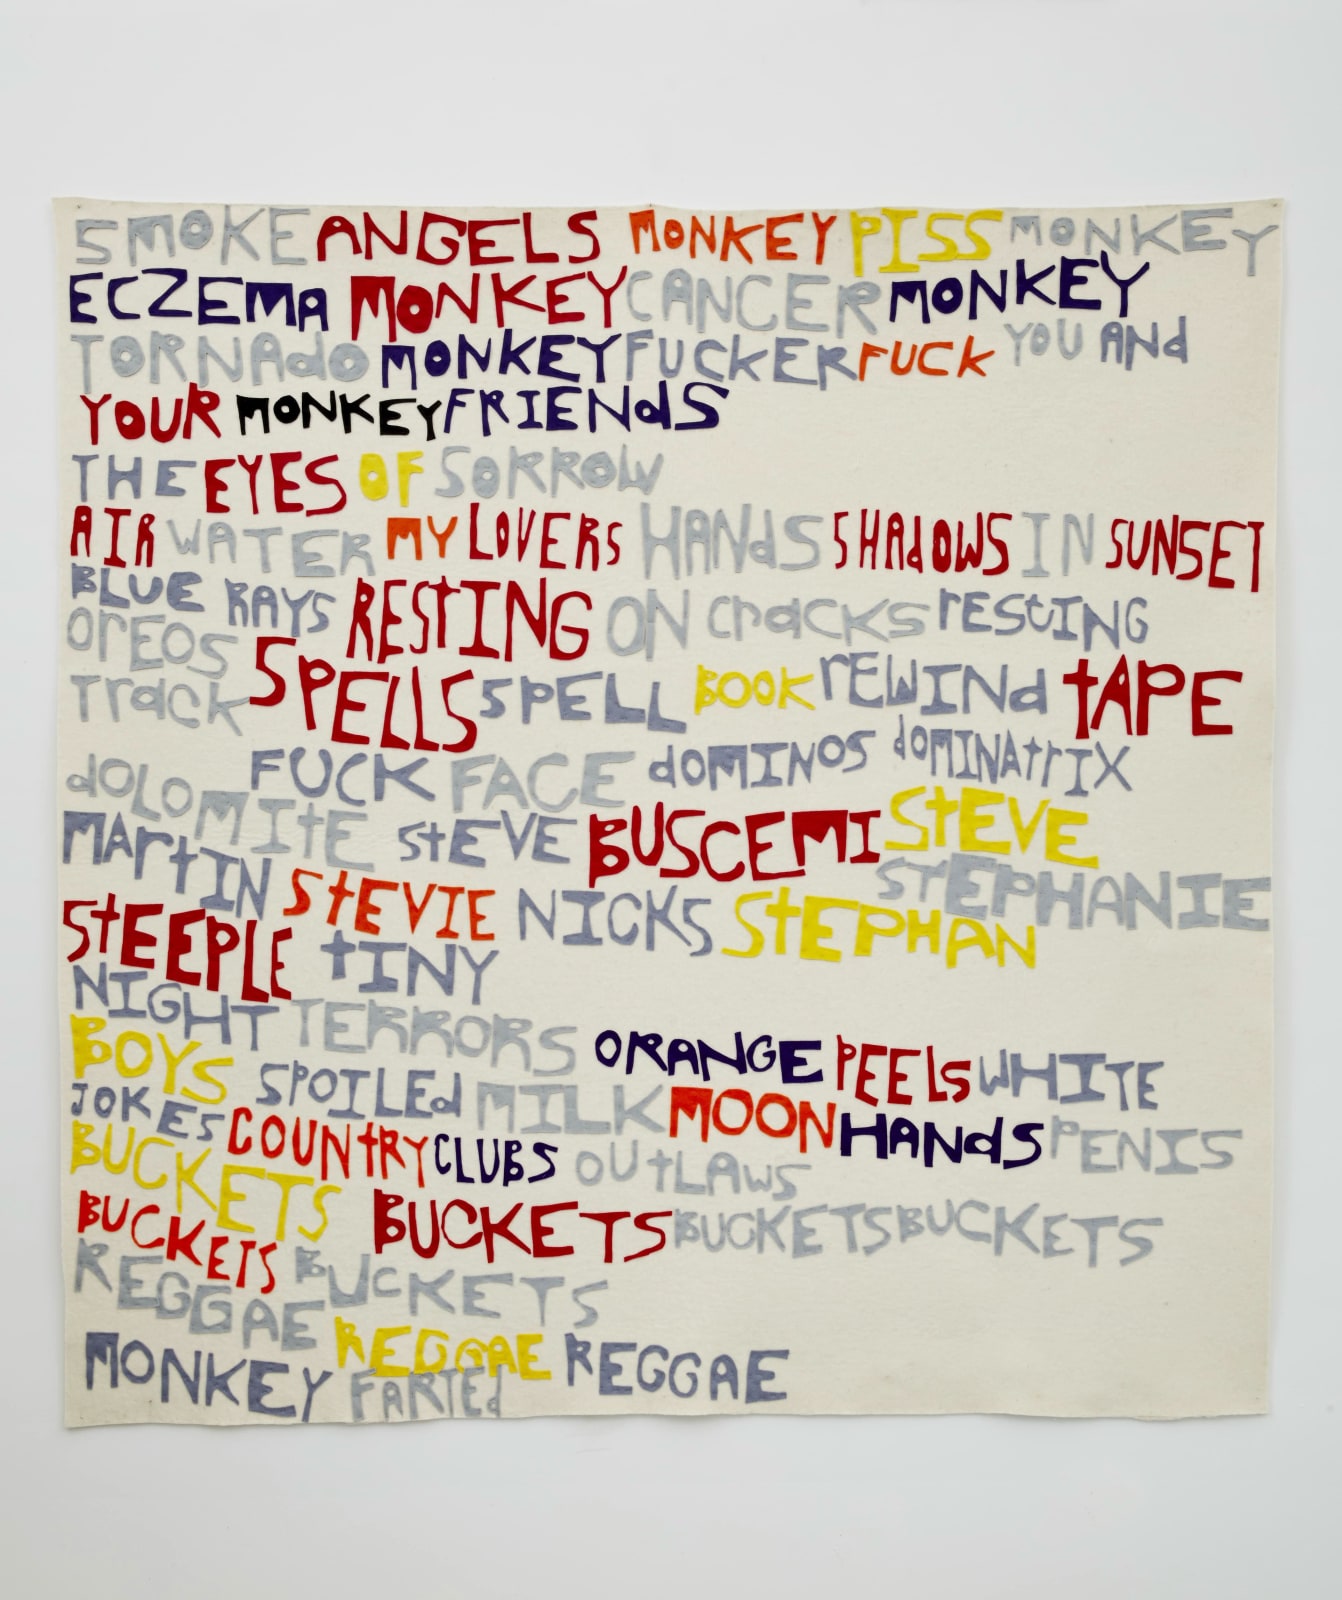 SMOKE ANGELS MONKEY PISS MONKEY
ECZEMA MONKEY CANCER MONKEY
TORNAdO MONKEY FUCKER FUCK YOU ANd
YOUR MONKEY FRIENdS
THE EYES OF SORROW
AIR WATER MY LOVERS HANdS SHAdOWS IN SUNSET
BLUE RAYS RESTING ON CraCKS rESTING
OrEOS SPELLS SPELL BOOK rEWINd tAPE
Track FUCK FACE dOMINOS dOMINAtrIX
dOLOMItE StEVE BUSCEMI StEVE
MArtIN StEVIE NICKS StEPHAN StEPHANIE
StEEPLE tINY
NIGHT TERRORS ORANGE PEELS WHITE
BOYS SPOILEd MILK MOON HANdS PENIS
JOKES COUNtRY CLUBS OUtLAWS
BUCKETS BUCKETS BUCKETS BUCKETS
BUCKETS BUCKETS
REGGAE REGGAE REGGAE
MONKEY FARTEd